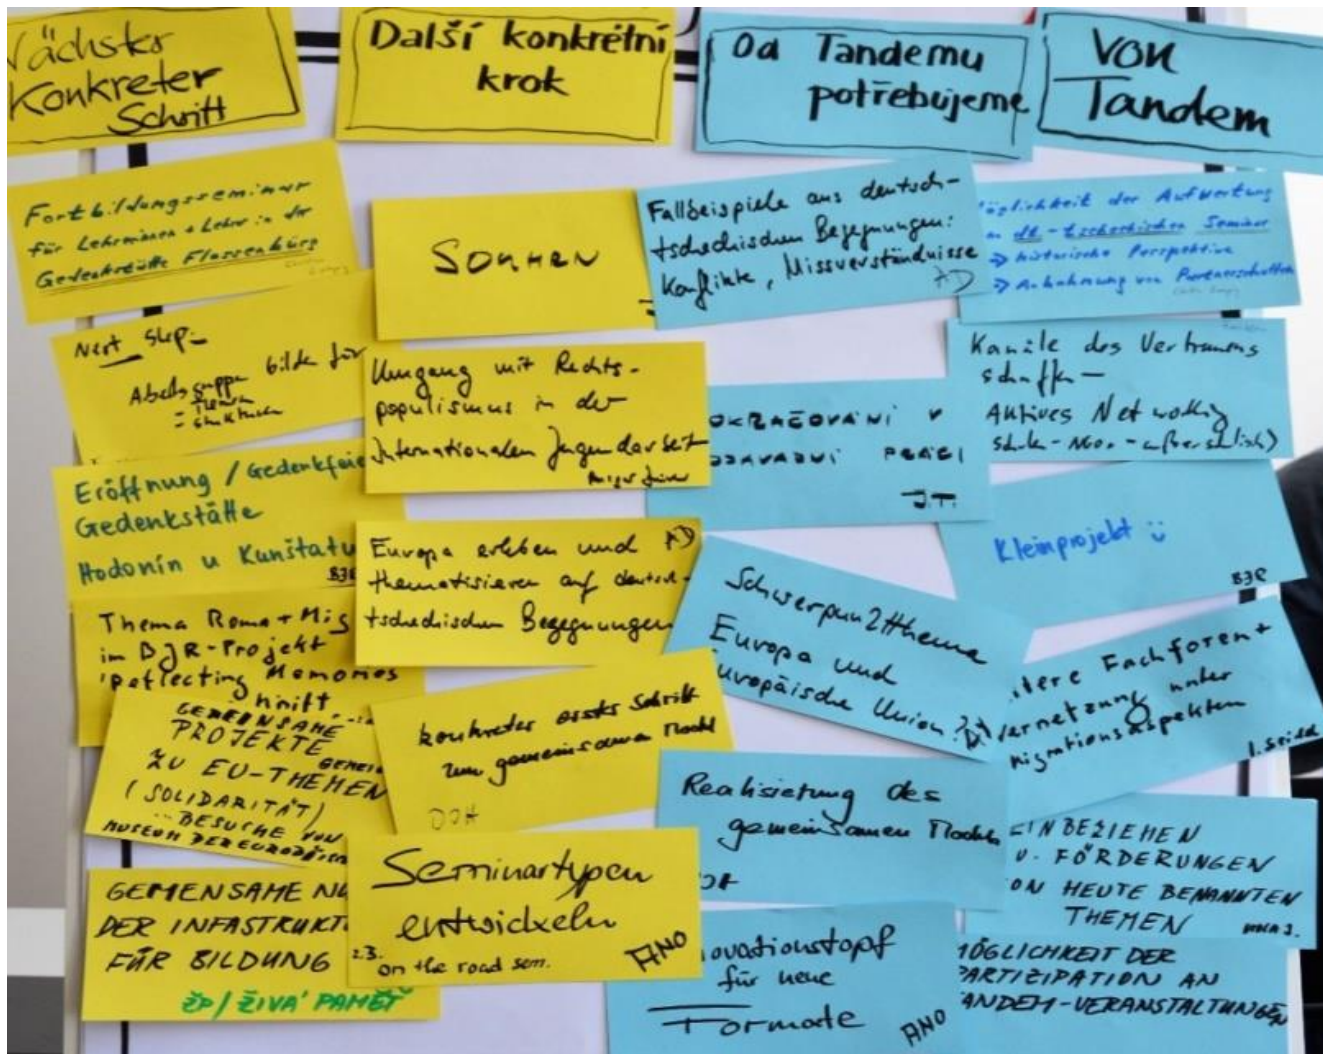 Nächster
Konkreter
Schritt
Další konkrétní
krok
Od Tandemu
potřebujeme
Von
Tandem
Fortbildungsseminar
für Lehrerinnen + Lehrer in der
Gedenkstätte Flossenbürg
Next Step
bilden für
- Themen
- Strukturen
Eröffnung / Gedenkfeier
Gedenkstätte
Hodonín u Kunštatu
BJR
Thema Roma + Mig
im BJR-Projekt
'Reflecting Memories
GEMEINSAME
PROJEKTE
ZU EU-THEMEN
(SOLIDARITÄT)
BESUCHE VON
MUSEUM DER EUROPÄISCH
GEMENSAME NU
DER INFASTRUKTU
FÜR BILDUNG
ŽP / ŽIVÁ PAMĚŤ
Umgang mit Rechts-
populismus in der
Internationalen Jugendarbeit
Europa erleben und AD
thematisieren auf deutsch-
tschechischen Begegnungen
konkreter erster Schritt
zum gemeinsamen
DOH
Seminartypen
entwickeln
z.B. on the road sem.
ANO
Fallbeispiele aus deutsch-
tschechischen Begegnungen:
Konflikte, Missverständnisse
AD
OKRAČOVÁNÍ V
PRÁCI
J.T.
Schwerpunktthema
Europa und
Europäische Union?
AD
Realisierung des
gemeinsamen
OH
ovationstopf
für neue
Formate
ANO
öglichkeit der Aufwertung
n dt.-tschechischen Seminar
→ historische Perspektive
→ Anbahnung von Partnerschaften
Kanäle des Vertrauens
schaffen –
Aktives Networking
Kleinprojekt ü
BJR
itere Fachforen +
ernetzung unter
migrationsaspekten
I. Seidl
EINBEZIEHEN
U. FÖRDERUNGEN
ON HEUTE BENANNTEN
THEMEN
MÖGLICHKEIT DER
PARTIZIPATION AN
ANDEM-VERANSTALTUNGEN